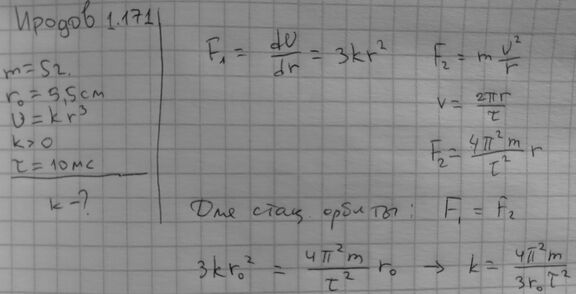 Иродов 1.171
m = 5 г.
r₀ = 5,5 см
U = kr³
k > 0
τ = 10 мс
k - ?
F₁ = dU/dr = 3kr²
F₂ = m v²/r
v = 2πr/τ
F₂ = 4π²m/τ² r
Для стац. орбиты: F₁ = F₂
3kr₀² = 4π²m/τ² r₀ → k = 4π²m/3r₀τ²